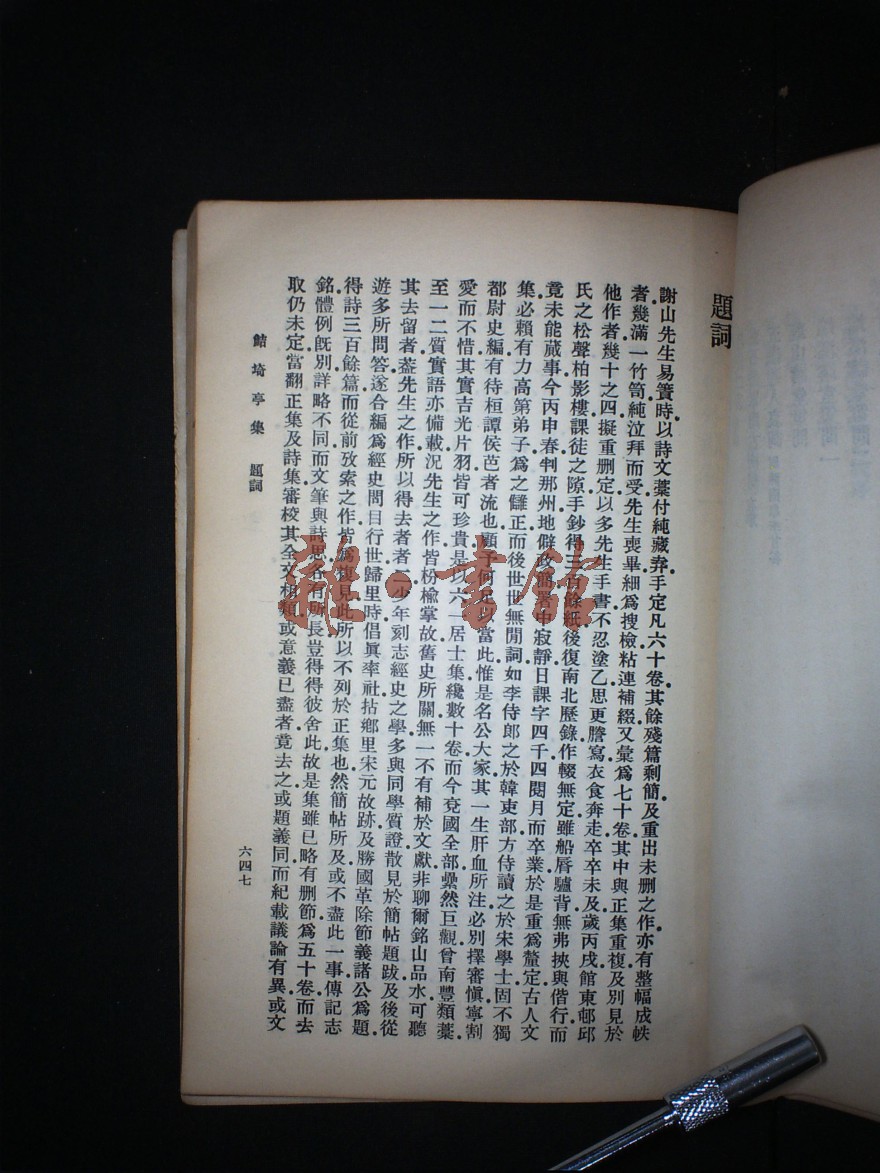 題詞
謝山先生易簀時以詩文藁付純藏弆手定凡六十卷其餘殘篇剩簡及重出未删之作亦有整幅成帙
者幾滿一竹笥純泣拜而受先生喪畢細爲搜檢粘連補綴又彙爲七十卷其中與正集重複及別見於
他作者幾十之四擬重删定以多先生手書不忍塗乙思更謄寫衣食奔走卒卒未及歲丙戌館東邨邱
氏之松聲柏影樓課徒之隙手鈔得三百餘紙後復南北歷錄作輟無定雖船唇驢背無弗挾與偕行而
竟未能蕆事今丙申春判那州地僻政簡署中寂靜日課字四千四閱月而卒業於是重爲釐定古人文
集必賴有力高第弟子爲之讎正而後世世無閒詞如李侍郎之於韓吏部方侍讀之於宋學士固不獨
都尉史編有待桓譚侯芭者流也顧予何足以當此惟是名公大家其一生肝血所注必別擇審愼寧割
愛而不惜其實吉光片羽皆可珍貴是以六一居士集纔數十卷而今兗國全部纍然巨觀曾南豐類藁
至一二質實語亦備載況先生之作皆枌楡掌故舊史所關無一不有補於文獻非聊爾銘山品水可聽
其去留者葢先生之作所以得去者者一少年刻志經史之學多與同學質證散見於簡帖題跋及後從
遊多所問答遂合編爲經史問目行世歸里時倡眞率社拈鄉里宋元故跡及勝國革除節義諸公爲題
得詩三百餘篇而從前攷索之作皆爲複見此所以不列於正集也然簡帖所及或不盡此一事傳記志
銘體例旣別詳略不同而文筆與詩思各有所長豈得得彼舍此故是集雖已略有删節爲五十卷而去
取仍未定當翻正集及詩集審校其全文相類或意義已盡者竟去之或題義同而紀載議論有異或文
鮚埼亭集　題詞
六四七
雜·書館